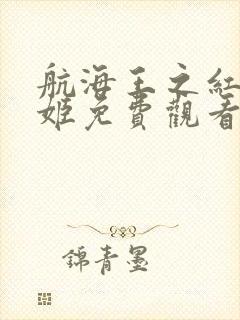 航海王之紅
姬免費觀看
錦青墨